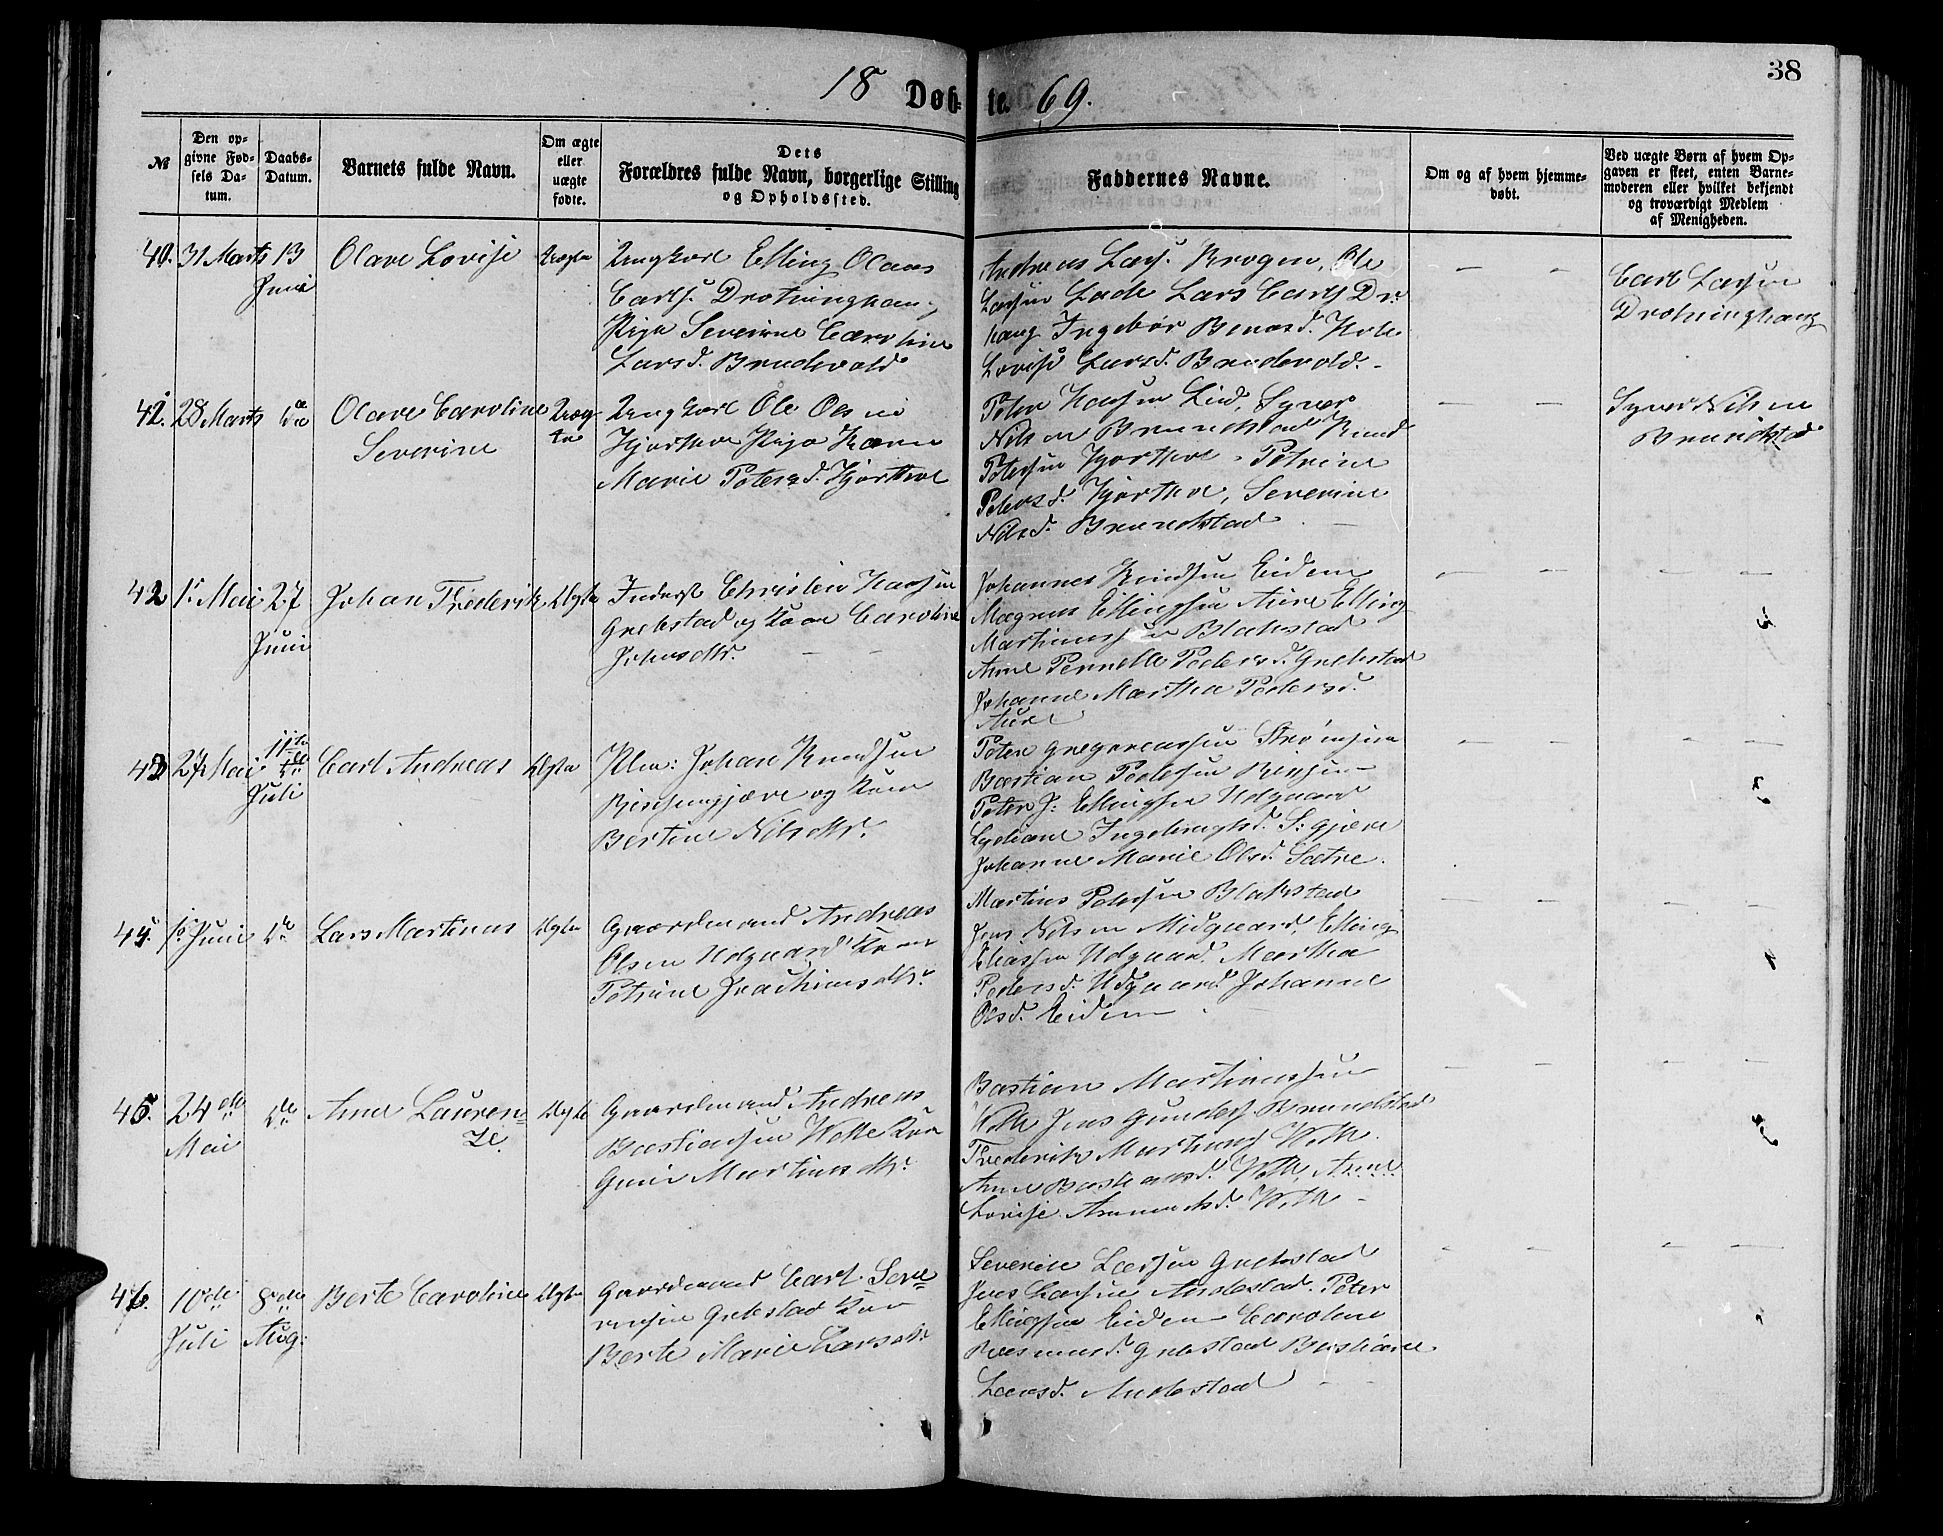 38
18 Døb- te. 69.
№
Den op-
givne Fød-
sels Da-
tum.
Daabs-
Datum.
Barnets fulde Navn.
Om ægte
eller
uægte
fødte.
Dets
Forældres fulde Navn, borgerlige Stilling
og Opholdssted.
Faddernes Navne.
Om og af hvem hjemme-
døbt.
Ved uægte Børn af hvem Op-
gaven er skeet, enten Barne-
moderen eller hvilket bekjendt
og troværdigt Medlem
af Menigheden.
40. 31 Marts 13
Juni
Olave Lovise
Uægte
Ungkarl Elling Olaus
Carls. Drotninghaug
Pige Severine Caroline
Larsd. Brudevold
Andreas Lars. Krogen, Ole
Larsen Lade Lars Carls Dr.
haug Ingebør
Lovise Larsd. Brudevold. -
Carl Larsen
Drotninghaug
41. 28 Marts do
Olave Caroline
Severine
Uæg-
te
Ungkarl Ole Olsen
Hjorthol Pige Karen
Marie Petersd. Hjorthol
Peter Hansen Lid, Syver
Nilsen Brunstad Knud
Petersen Hjorthol - Petrine
Petersd. Hjorthol, Severine
Nilsd. Brunstad
Syver Nilsen
Brunstad
42 1. Mai 27
Juni
Johan Frederik
Ægte
Inderst Christen Hansen
Grebstad og Kone Caroline
Johnsdtr.
Johannes Knudsen Eidem
Magnus Ellingsen Aure Elling
Martinussen Blakstad
Ane Pernelle Pedersd. Grebstad
Johanne Martha Pedersd.
Aure
43 27 Mai 11te
Juli
Carl Andreas
Ægte
Plm: Johan Knudsen
og Kone
Bertine Nilsdtr.
Peter Gregoriussen Strømmen
Bastian Pedersen
Peter J: Ellingsen Udgaard
Lydiane Ingebrigtsd. S: gjære
Johanne Marie Olsd. Sætre.
44. 10 Juni do
Lars Martinus
Ægte
Gaardmand Andreas
Olsen Udgaard Kone
Petrine Joachimsdtr.
Martinus Petersen Blakstad
Jens Nilsen Midgaard, Elling
Eliassen Udgaard. Martha
Pedersd. Udgaard Johanne
Olsd. Eidem
45. 24de
Mai
do
Ane Lauren-
ze.
Ægte
Gaardmand Andreas
Bastiansen Welle Kone
Guri Martinusdtr.
Bastian Martinussen
Welle Jens Gunders. Brunstad
Frederik Martinus Welle.
Ane Bastiansd. Welle, Anne
Lovise Welle -
46. 10de 8de
Juli Aug:
Berte Caroline
Ægte
Gaardmand Carl Seve-
rinsen Grebstad Kone
Berte Marie Larsdtr.
Severin Larsen Grebstad
Jens Larsen Andestad. Peter
Ellingsen Eidem - Caroline
Rasmusd. Grebstad Bastiane
Larsd. Andestad